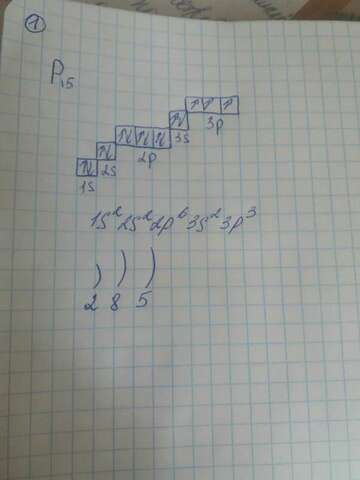 1
P₁₅
3p
3s
2p
2s
1s
1s²2s²2p⁶3s²3p³
) ) )
2 8 5